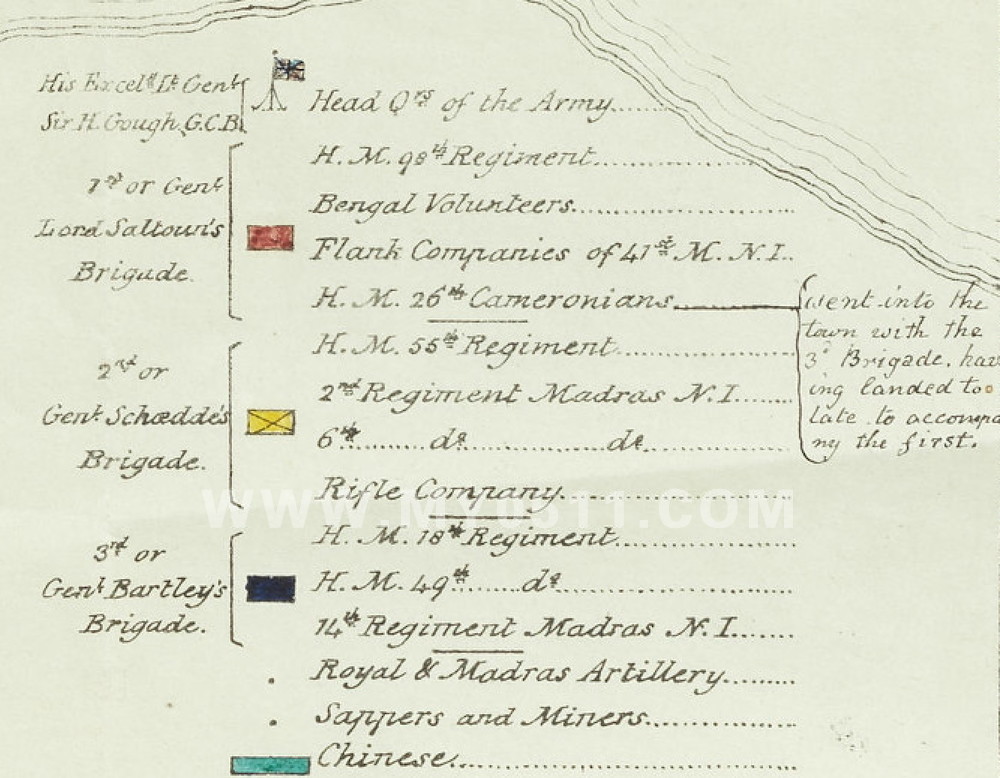 His Excelly Lt Genl
Sir H. Gough, G.C.B.
Head Qrs of the Army
1st or Genl
Lord Saltoun's
Brigade.
H. M. 98th Regiment
Bengal Volunteers
Flank Companies of 41st M. N. I.
H. M. 26th Cameronians
went into the
town with the
3d Brigade, hav
ing landed too
late to accompa
ny the first.
2nd or
Genl Schœdde's
Brigade.
H. M. 55th Regiment
2nd Regiment Madras N. I.
6th do do
Rifle Company
3rd or
Genl Bartley's
Brigade.
H. M. 18th Regiment
H. M. 49th do
14th Regiment Madras N. I.
Royal & Madras Artillery
Sappers and Miners
Chinese